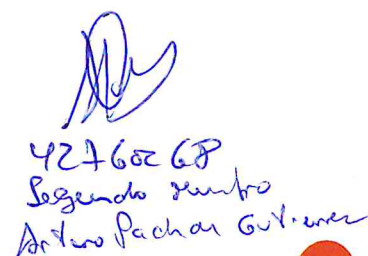 42760268
Segundo miembro
Arturo Pachas Gutierrez